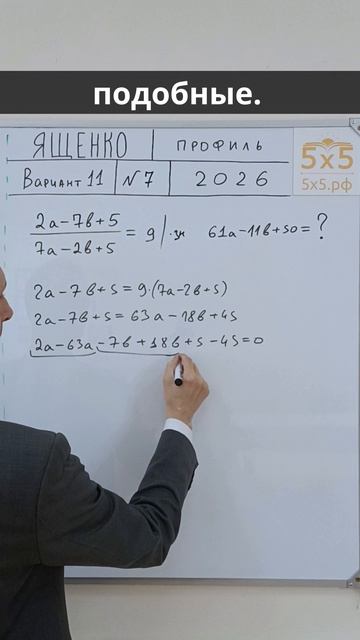 подобные.
ЯЩЕНКО ПРОФИЛЬ
5x5
5x5.рф
Вариант 11 №7 2026
(2a-7b+5)/(7a-2b+5) = 9 |·зн 61a-11b+50=?
2a-7b+5=9·(7a-2b+5)
2a-7b+5=63a-18b+45
2a-63a-7b+18b+5-45=0